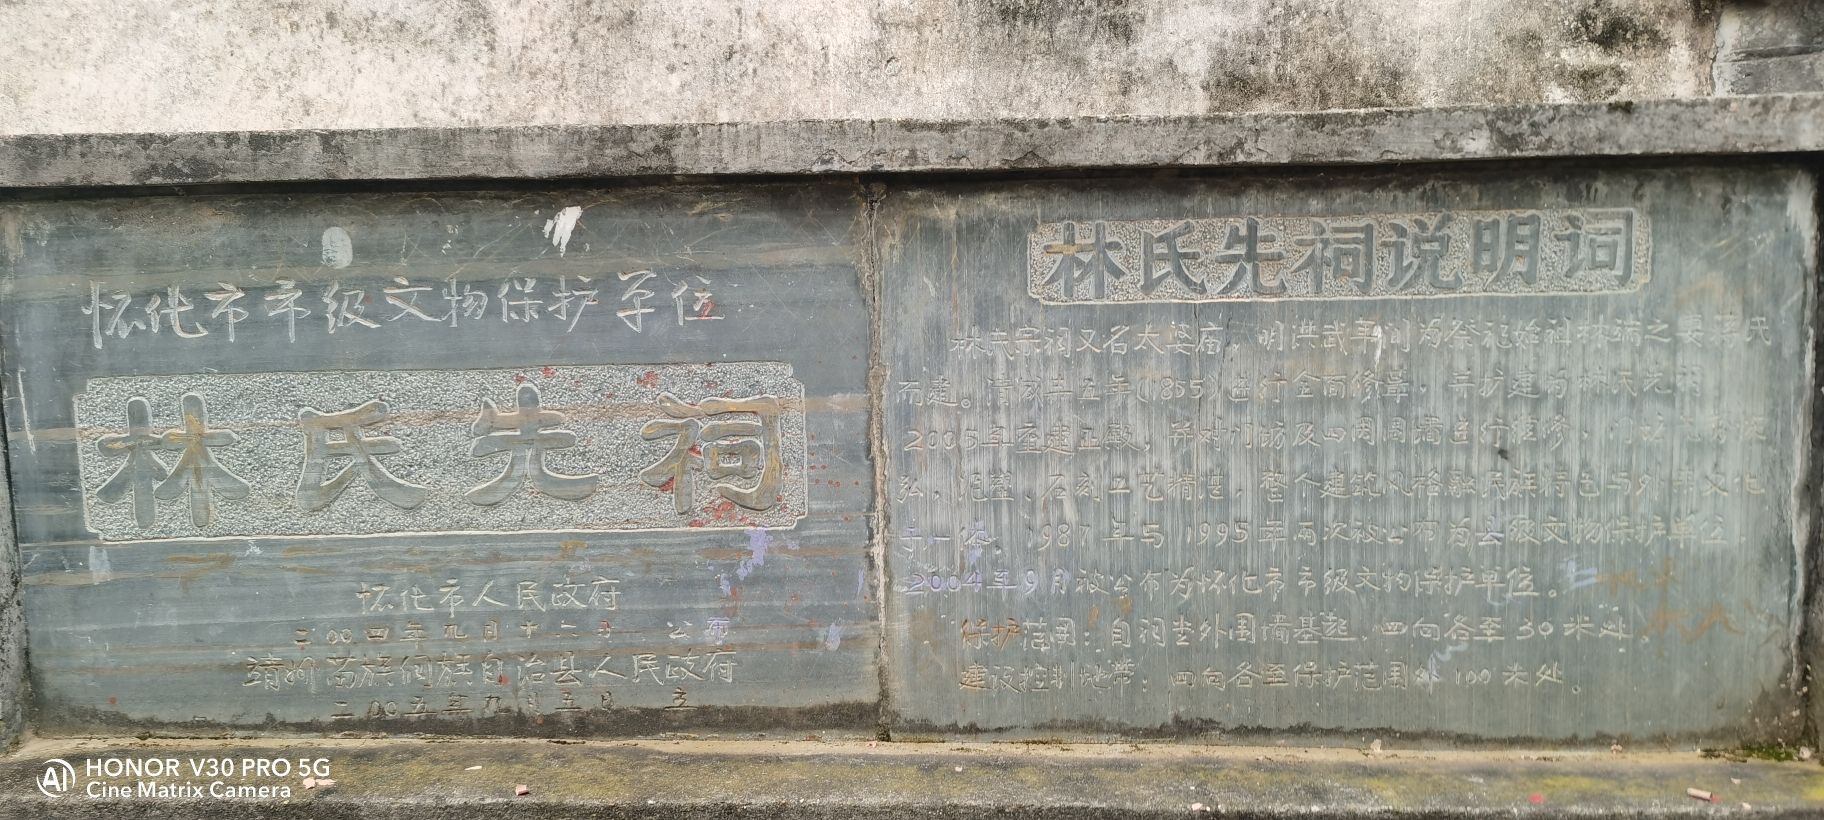 怀化市市级文物保护单位
林氏先祠
怀化市人民政府
二00四年九月十二日 公布
靖州苗族侗族自治县人民政府
二00五年九月五日 立
林氏先祠说明词
林氏宗祠又名太婆庙，明洪武年间为祭祀始祖林 之妻蒋氏
而建。清咸丰五年(1855)进行全面修葺，并扩建为林氏先祠
2005年重建正殿，并对门坊及四周围墙进行维修，门坊
弘，泥塑、石刻工艺精湛，整个建筑风格融民族特色与外来文化
于一体，1987年与1995年两次被公布为县级文物保护单位，
2004年9月被公布为怀化市市级文物保护单位。
保护范围：自祠堂外围墙基起，四向各至30米处。
建设控制地带：四向各至保护范围外100米处。
HONOR V30 PRO 5G
Cine Matrix Camera